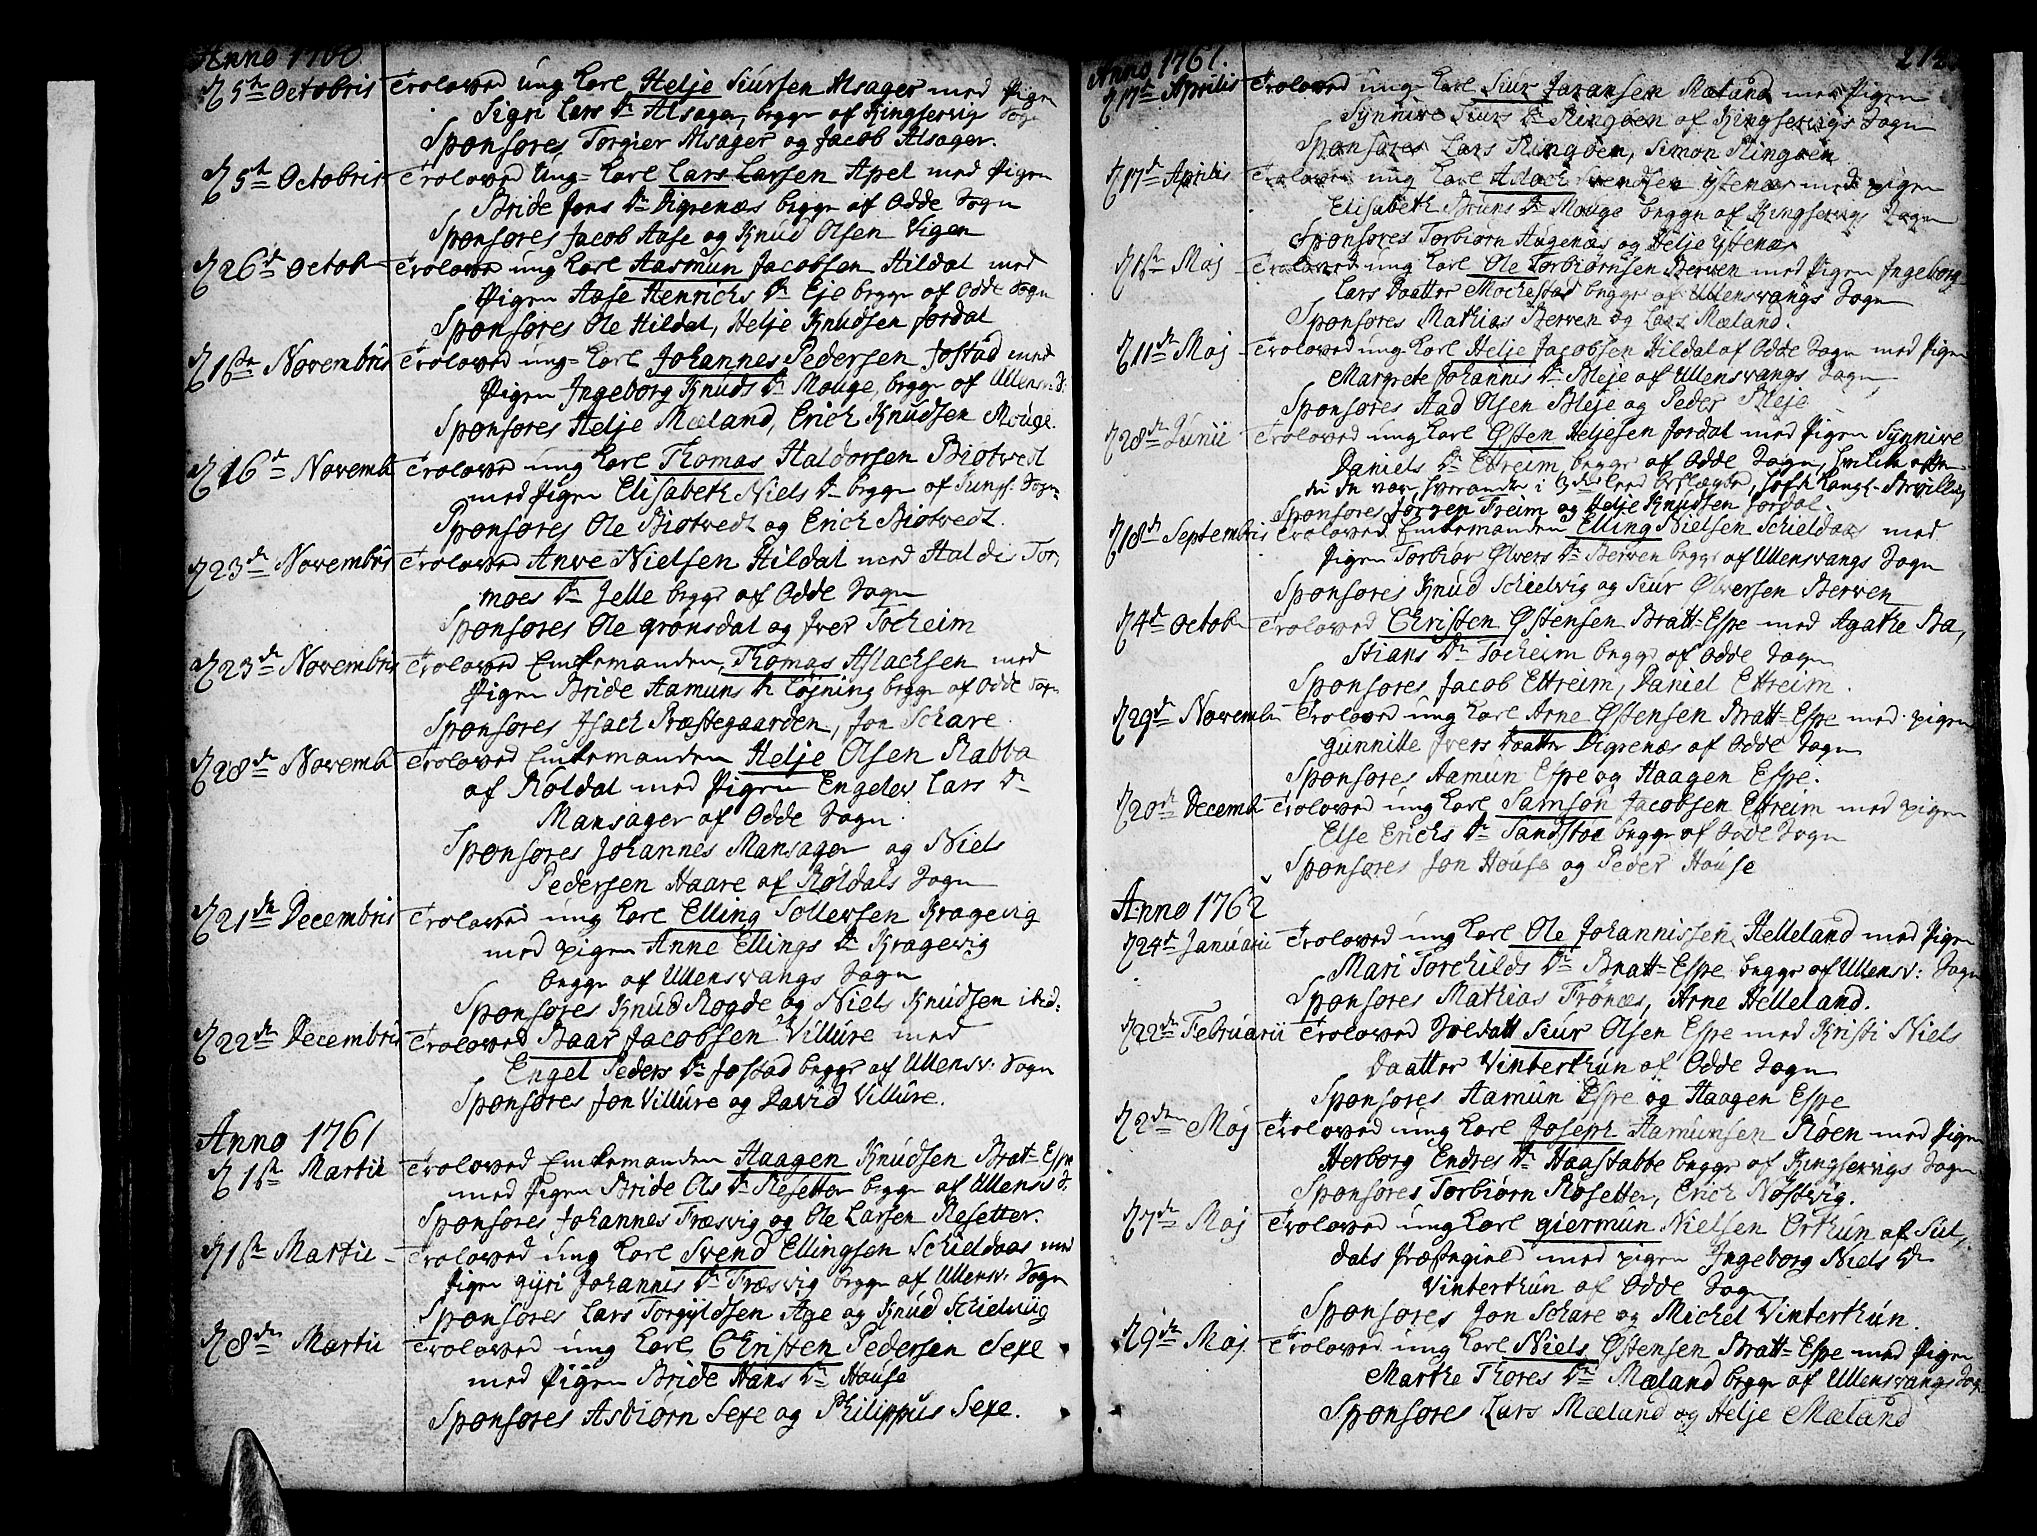 Anno 1760
D 5te Octobris Troloved ung Karl Helje Siursen Alsager med Pigen
Sigri Lars Dr Alsager, begge af Kingservig Sogn
Sponsores Torgier Alsager og Jacob Alsager.
D 5te Octobris Troloved Ung-Karl Lars Larsen Apel med Pigen
Bride Jons Dr Digrenæs begge af Odde Sogn
Sponsores Jacob Aase og Knud Olsen Vigen
D 26de Octob Troloved ung Karl Aasmun Jacobsen Hildal med
Pigen Aase Henrichs Dr Eje begge af Odde Sogn
Sponsores Ole Hildal, Helje Knudsen Jordal
D 1ste Novembris Troloved ung-Karl Johannes Pedersen Jostad med
Pigen Ingeborg Knuds Dr Mouge, begge af Ullensv: S:
Sponsores Helje Mæland, Erich Knudsen Mouge.
D 16de Novemb Trolove ung Karl Thomas Haldorsen Biotvedt
med Pigen Elisabeth Niels Dr begge af Sogn
Sponsores Ole Biotvedt og Erich Biotvedt.
D 23de Novembris Troloved Anve Nielsen Hildal med Haldis Tor,
moes Dr Jelle begge af Odde Sogn
Sponsores Ole Gronsdal og Iver Tocheim
D 23de Novembris Troloved Enkemanden Thomas Aslachsen med
Pigen Bride Aamuns Dr Løjning begge af Odde Sogn
Sponsores Isach Præstegaarden, Jon Schare.
D 28de Novemb Troloved Enkemanden Helje Olsen Rabba
af Røldal med Pigen Engelev Lars Dr
Mansager af Odde Sogn.
Sponsores Johannes Mansager og Niels
Pedersen Haare af Røldals Sogn
D 21de Decembris Troloved ung Karl Elling Tollevsen Kragevig
med pigen Anne Ellings Dr Kragevig
begge af Ullensvangs Sogn
Sponsores Knud Rogde og Niels Knudsen ibid:
D 22de Decembris Troloved Baar Jacobsen Villure med
Engel Peders Dr Jostad begge af Ullensv: Sogn
Sponsores Jon Villure og David Villure.
Anno 1761
D 1ste Martii Troloved Enkemanden Haagen Knudsen Bratt-Espe
med Pigen Bride Ols Dr Resetter begge af Ullensv S:
Sponsores Johannes Træsvig og Ole Larsen Resetter.
D 1ste Martii - Trolovet ung Karl Svend Ellingsen Schieldaas med
Pigen Gyri Johannis Dr Træsvig begge af Ullensv: Sogn
Sponsores Lars Torgyldsen Age og Knud Schielvig
D 8de Martii Trolovet ung Karl Christen Pedersen Sexe
med Pigen Bride Hans Dr House
Sponsores Asbiorn Sexe og Philippus Sexe.
Anno 1761.
D 17de Aprilis Trolovet ung-Karl Siur Joransen Mæland med Pigen
Synnive Siurs Dr Ringøen af Kingservigs Sogn
Sponsores Lars Ringøen, Simon Ringøen
D 17de Aprilis Trolovet ung Karl Aslach Svendsen Ystenæs med pigen
Elisabeth Bruns Dr Mouge begge af Kingservigs Sogn
Sponsores Torbiørn Augenæs og Helje Ystenæs
D 1ste Maj Trolovet ung Karl Ole Torbiørnsen Berven med Pigen Ingeborg
Lars Daatter Mochestad begge af Ullensvangs Sogn
Sponsores Mathias Berven og Lars Mæland.
D 11de Maj Trolovet ung Karl Helje Jacobsen Hildal af Odde Sogn med Pigen
Margrete Johannis Dr Bleje af Ullensvangs Sogn
Sponsores Aad Olsen Bleje og Peder Bleje
D 28de Junii Trolovet ung Karl Østen Heljesen Jordal med Pigen Synnive
Daniels Dr Ettreim begge af Odde Sogn, hvilke
de var hverandre i 3die Leed Beslægtet,
Sponsores Jørgen Freim og Helje Knudsen Jordal.
D 18de Septembris Trolovet Enkemanden Elling Nielsen Schieldaas med
Pigen Torbior Ølvers Dr Berven begge af Ullensvangs Sogn
Sponsores Knud Schielvig og Siur Ølversen Berven
D 4de Octob Trolovet Christen Østensen Bratt-Espe med Agathe Ba,
stians Dr Tocheim begge af Odde Sogn
Sponsores Jacob Ettreim, Daniel Ettreim.
D 29de Novemb Trolovet ung Karl Arne Østensen Bratt-Espe med pigen
Gunnille Ivers Daatter Digrenæs af Odde Sogn
Sponsores Aamun Espe og Haagen Espe.
D 20de Decemb Trolovet ung Karl Samson Jacobsen Ettreim med pigen
Else Erichs Dr Sandstøe begge af Odde Sogn
Sponsores Jon House og Peder House
Anno 1762
D 24de Januarii Trolovet ung Karl Ole Johannissen Helleland med Pigen
Mari Torchilds Dr Bratt-Espe begge af Ullensv: Sogn
Sponsores Mathias Frönæs, Arne Helleland.
D 22de Februarii Trolovet Soldatt Siur Olsen Espe med Kristi Niels
Daatter Vinterthun af Odde Sogn
Sponsores Aamun Espe og Haagen Espe
D 2den Maj Trolovet ung Karl Joseph Aamunsen Røen med Pigen
Herborg Endres Dr Haastabbe begge af Kingservigs Sogn
Sponsores Torbiørn Rosetter, Erich Nøstvig.
D 7de Maj Trolovet ung Karl Giermun Nielsen Orthun af Sul,
dals Præstegield med pigen Ingeborg Niels Dr
Vinterthun af Odde Sogn
Sponsores Jon Schare og Michel Vinterthun.
D 9de Maj Trolovet ung Karl Niels Østensen Bratt-Espe med Pigen
Marthe Thores Dr Mæland begge af Ullensvangs Sogn
Sponsores Lars Mæland og Helje Mæland